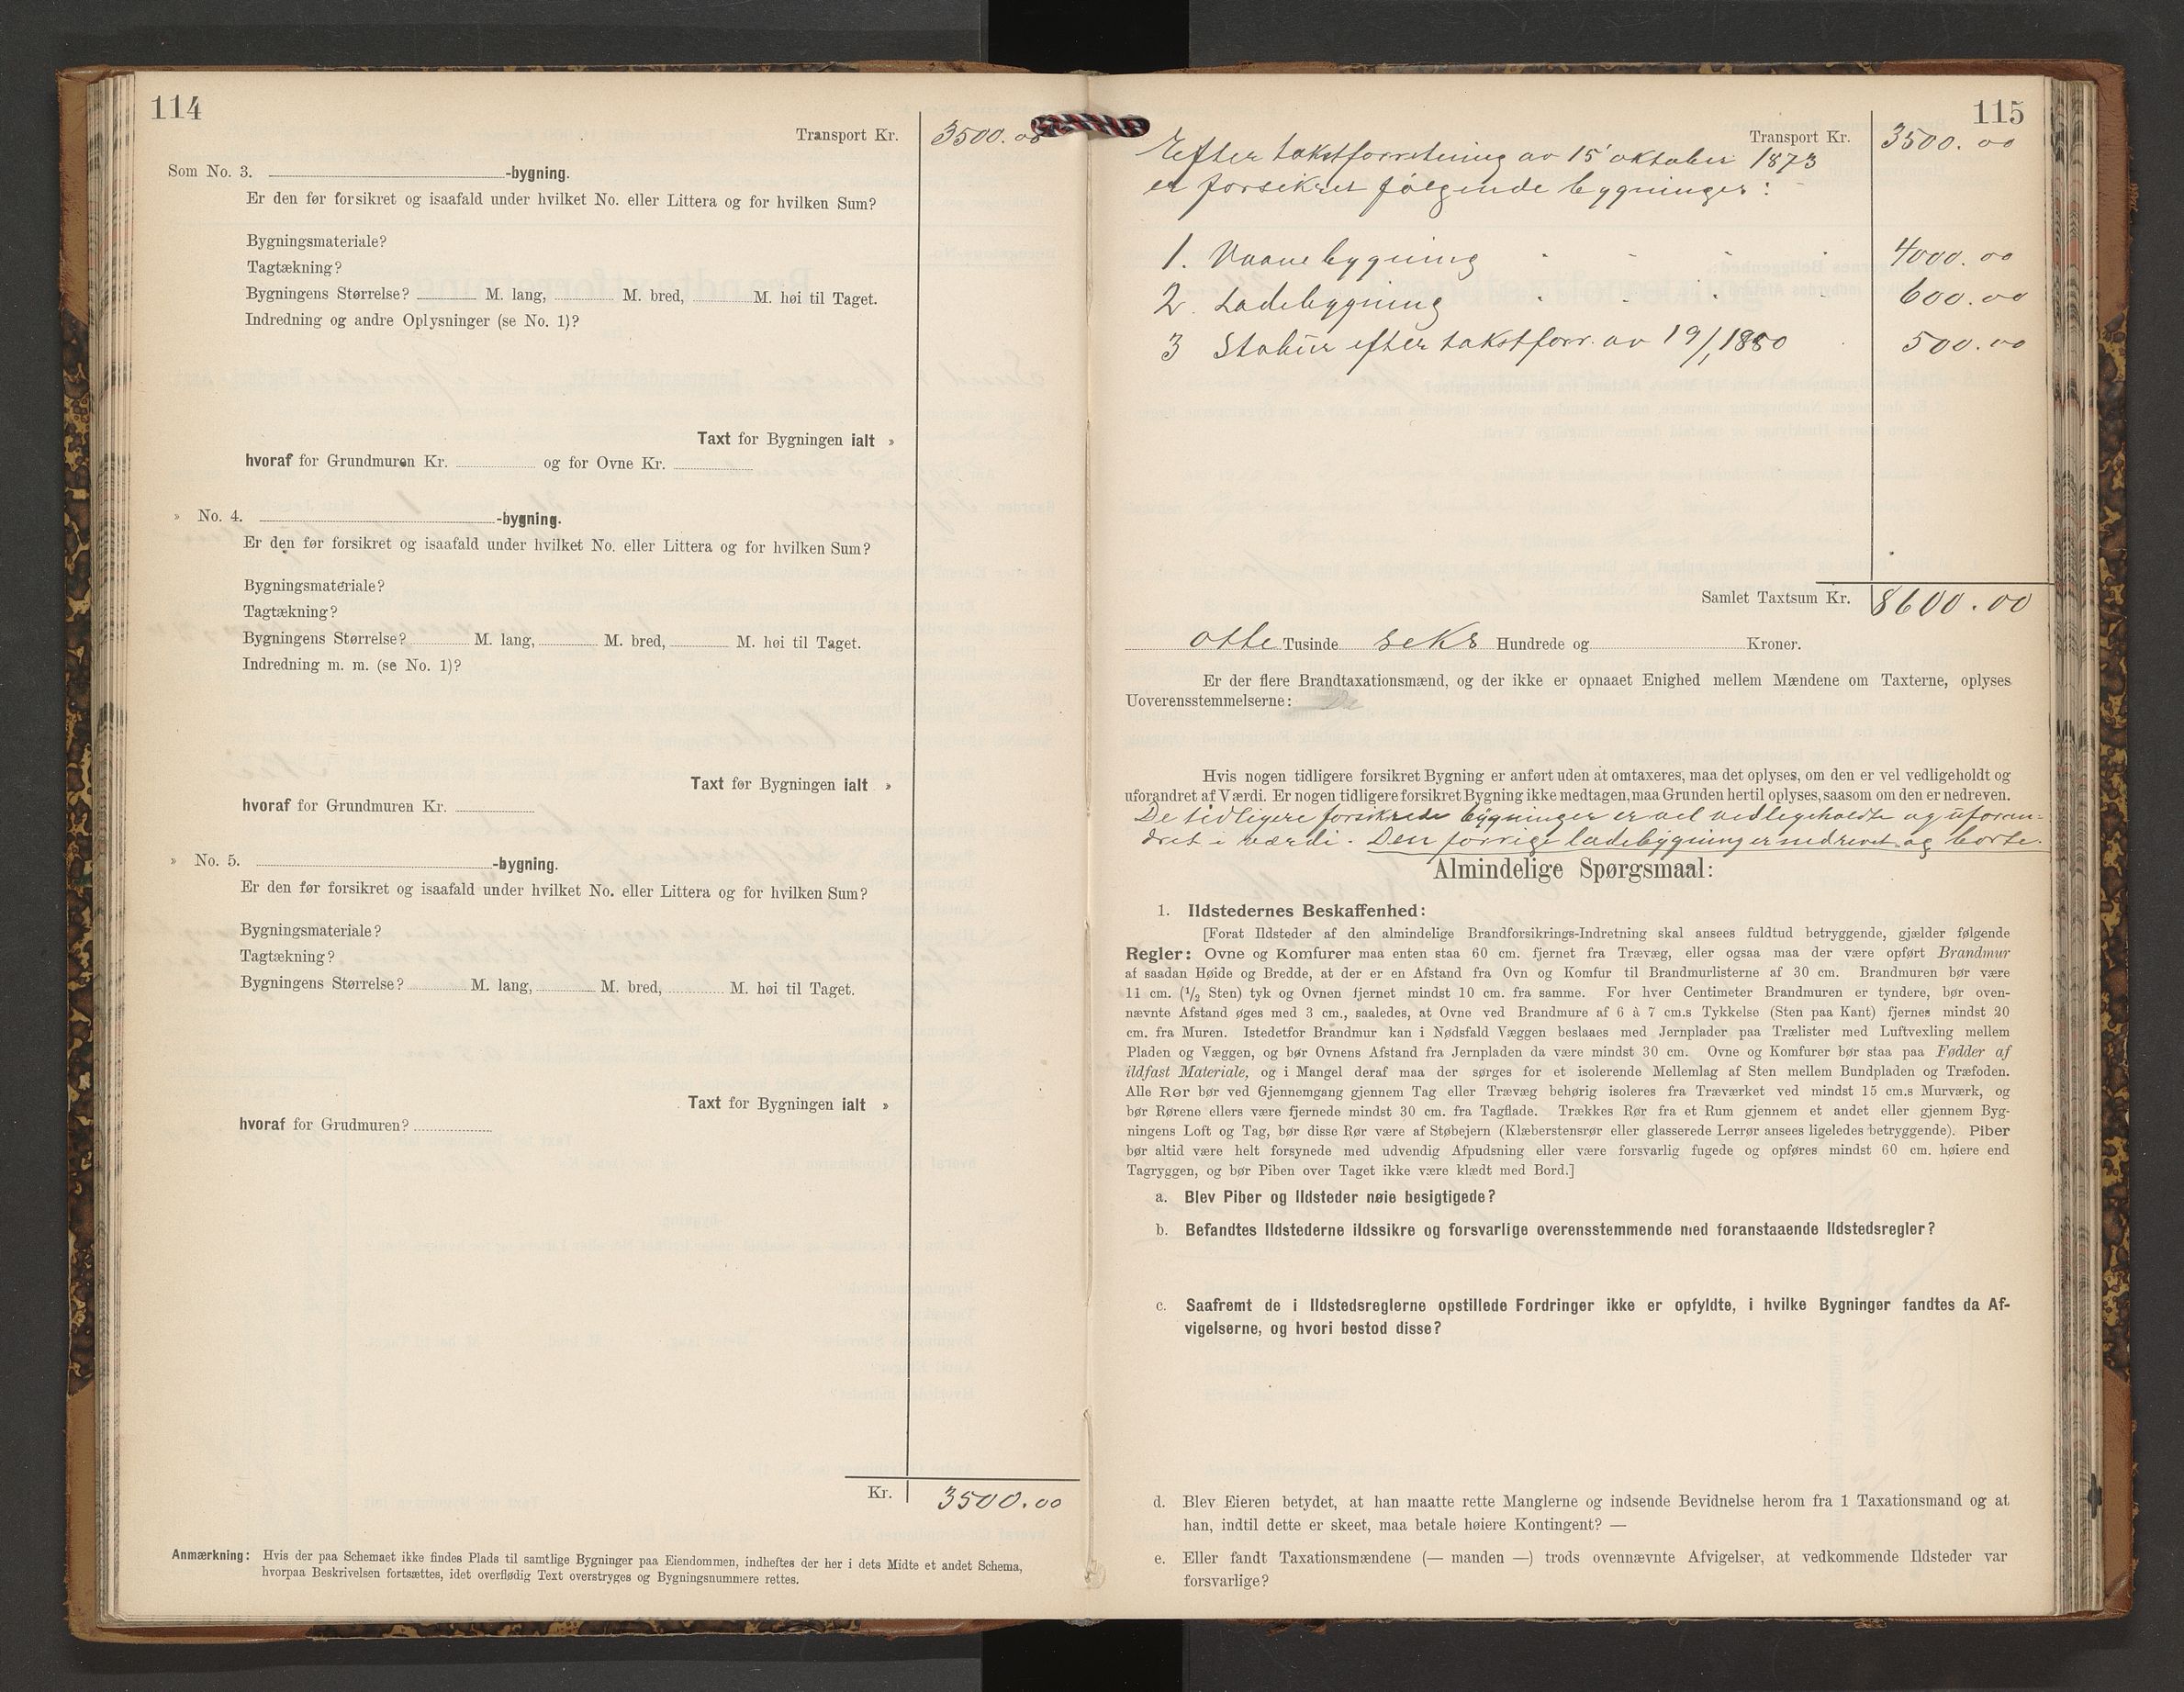 114
Transport Kr. 3500.00
Som No. 3. -bygning.
Er den før forsikret og isaafald under hvilket No. eller Littera og for hvilken Sum?
Bygningsmateriale?
Tagtækning?
Bygningens Størrelse? M. lang, M. bred, M. høi til Taget.
Indredning og andre Oplysninger (se No. 1)?
Taxt for Bygningen ialt »
hvoraf for Grundmuren Kr. og for Ovne Kr.
» No. 4. -bygning.
Er den før forsikret og isaafald under hvilket No. eller Littera og for hvilken Sum?
Bygningsmateriale?
Tagtækning?
Bygningens Størrelse? M. lang, M. bred, M. høi til Taget.
Indredning m. m. (se No. 1)?
Taxt for Bygningen ialt »
hvoraf for Grundmuren Kr.
» No. 5. -bygning.
Er den før forsikret og isaafald under hvilket No. eller Littera og for hvilken Sum?
Bygningsmateriale?
Tagtækning?
Bygningens Størrelse? M. lang, M. bred, M. høi til Taget.
Taxt for Bygningen ialt »
hvoraf for Grudmuren?
Kr. 3500.00
Anmærkning: Hvis der paa Schemaet ikke findes Plads til samtlige Bygninger paa Eiendommen, indheftes der her i dets Midte et andet Schema,
hvorpaa Beskrivelsen fortsættes, idet overflødig Text overstryges og Bygningsnummere rettes.
115
Transport Kr. 3500.00
Efter takstforretning av 15' oktober 1873
er forsikret følgende bygninger:
1. Vaanebygning 4000.00
2. Ladebygning 600.00
3 Stabur efter takstforr. av 19/1 1880 500.00
Samlet Taxtsum Kr. 8600.00
otte Tusinde seks Hundrede og Kroner.
Er der flere Brandtaxationsmænd, og der ikke er opnaaet Enighed mellem Mændene om Taxterne, oplyses
Uoverensstemmelserne:
Hvis nogen tidligere forsikret Bygning er anført uden at omtaxeres, maa det oplyses, om den er vel vedligeholdt og
uforandret af Værdi. Er nogen tidligere forsikret Bygning ikke medtagen, maa Grunden hertil oplyses, saasom om den er nedreven.
De tidligere forsikrede bygninger er vel vedligeholdte og uforan-
dret i værdi. Den forrige ladebygning er nedrevet og borte.
Almindelige Spørgsmaal:
1. Ildstedernes Beskaffenhed:
[Forat Ildsteder af den almindelige Brandforsikrings-Indretning skal ansees fuldtud betryggende, gjælder følgende
Regler: Ovne og Komfurer maa enten staa 60 cm. fjernet fra Trævæg, eller ogsaa maa der være opført Brandmur
af saadan Høide og Bredde, at der er en Afstand fra Ovn og Komfur til Brandmurlisterne af 30 cm. Brandmuren bør være
11 cm. (1/2 Sten) tyk og Ovnen fjernet mindst 10 cm. fra samme. For hver Centimeter Brandmuren er tyndere, bør oven-
nævnte Afstand øges med 3 cm., saaledes, at Ovne ved Brandmure af 6 à 7 cm.s Tykkelse (Sten paa Kant) fjernes mindst 20
cm. fra Muren. Istedetfor Brandmur kan i Nødsfald Væggen beslaaes med Jernplader paa Trælister med Luftvexling mellem
Pladen og Væggen, og bør Ovnens Afstand fra Jernpladen da være mindst 30 cm. Ovne og Komfurer bør staa paa Fødder af
ildfast Materiale, og i Mangel deraf maa der sørges for et isolerende Mellemlag af Sten mellem Bundpladen og Træfoden.
Alle Rør bør ved Gjennemgang gjennem Tag eller Trævæg behørig isoleres fra Træværket ved mindst 15 cm.s Murværk, og
bør Rørene ellers være fjernede mindst 30 cm. fra Tagflade. Trækkes Rør fra et Rum gjennem et andet eller gjennem Byg-
ningens Loft og Tag, bør disse Rør være af Støbejern (Klæberstensrør eller glasserede Lerrør ansees ligeledes betryggende). Piber
bør altid være helt forsynede med udvendig Afpudsning eller være forsvarlig fugede og opføres mindst 60 cm. høiere end
Tagryggen, og bør Piben over Taget ikke være klædt med Bord.]
a. Blev Piber og Ildsteder nøie besigtigede?
b. Befandtes Ildstederne ildssikre og forsvarlige overensstemmende med foranstaaende Ildstedsregler?
c. Saafremt de i Ildstedsreglerne opstillede Fordringer ikke er opfyldte, i hvilke Bygninger fandtes da Af-
vigelserne, og hvori bestod disse?
d. Blev Eieren betydet, at han maatte rette Manglerne og indsende Bevidnelse herom fra 1 Taxationsmand og at
han, indtil dette er skeet, maa betale høiere Kontingent? —
e. Eller fandt Taxationsmændene (— manden —) trods ovennævnte Afvigelser, at vedkommende Ildsteder var
forsvarlige?